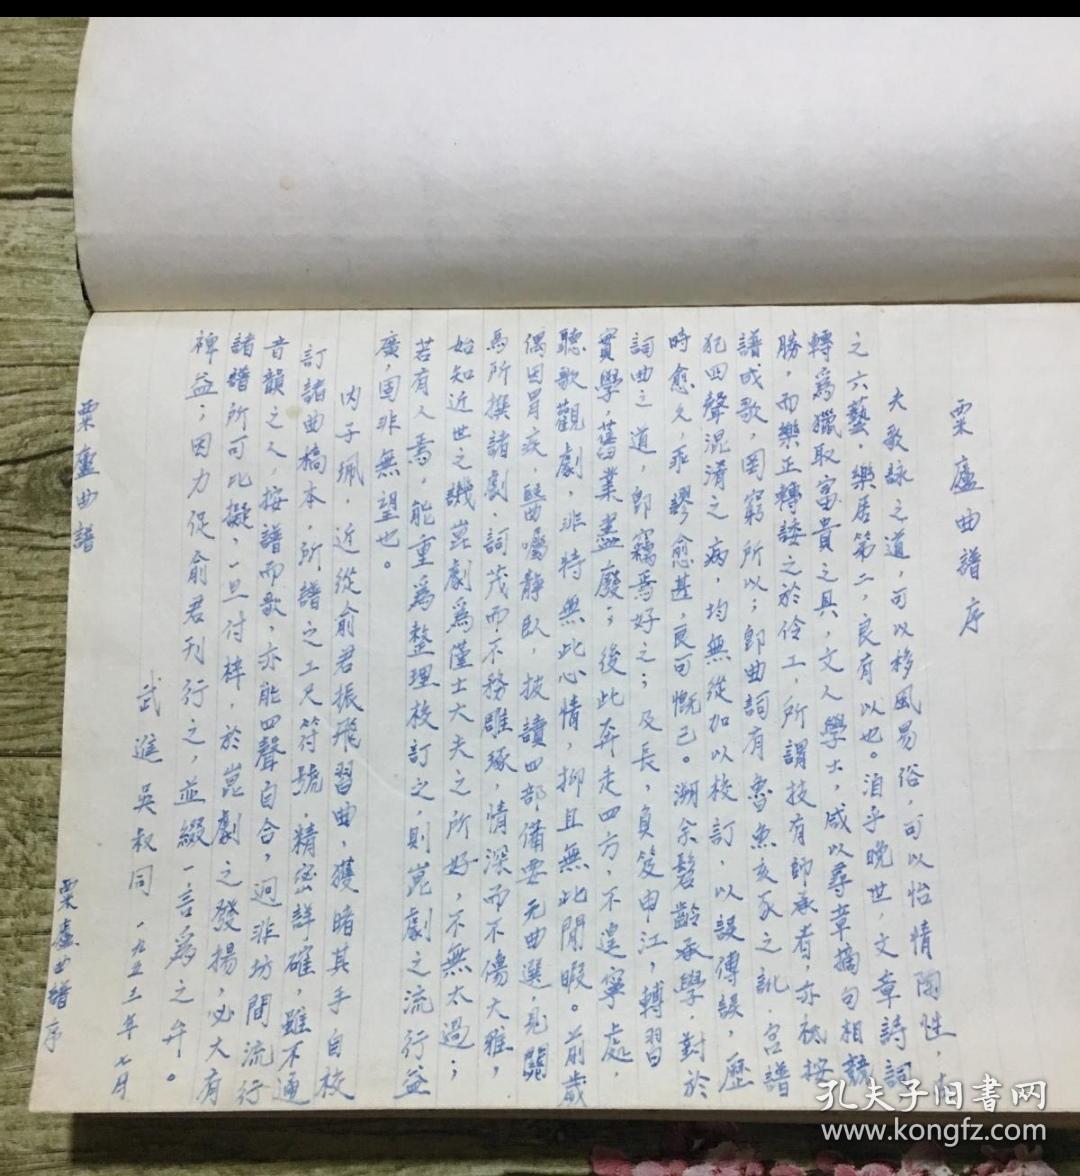 栗廬曲譜序
夫歌詠之道，可以移風易俗，可以怡情陶性，古
之六藝，樂居第二，良有以也。洎乎晚世，文章詩詞
轉爲獵取富貴之具，文人學士，咸以尋章摘句相競
勝，而樂正轉諉之於伶工，所謂技有師承者，亦衹按
譜成歌，罔窮所以；郎曲詞有魯魚亥豕之訛，宮譜
犯四聲混淆之病，均無從加以校訂，以誤傳誤，歷
時愈久，乖謬愈甚，良可慨已。溯余髫齡承學，對於
詞曲之道，卽竊焉好之；及長，負笈申江，轉習
實學，舊業盡廢；後此奔走四方，不遑寧處，
聽歌觀劇，非特無此心情，抑且無此閒暇。前歲
偶因胃疾，醫囑靜臥，披讀四部備要元曲選，見關
馬所撰諸劇，詞茂而不務雕琢，情深而不傷大雅，
始知近世之譏崑劇爲僅士大夫之所好，不無太過；
若有人焉，能重爲整理校訂之，則崑劇之流行益
廣，固非無望也。
內子珮，近從俞君振飛習曲，獲睹其手自校
訂諸曲稿本，所譜之工尺符號，精密詳確，雖不通
音韻之人，按譜而歌，亦能四聲自合，迥非坊間流行
諸譜所可比擬，一旦付梓，於崑劇之發揚，必大有
裨益；因力促俞君刊行之，並綴一言爲之弁。
武進吳叔同一九五三年七月
栗廬曲譜
栗廬曲譜序
孔夫子旧書网
www.kongfz.com